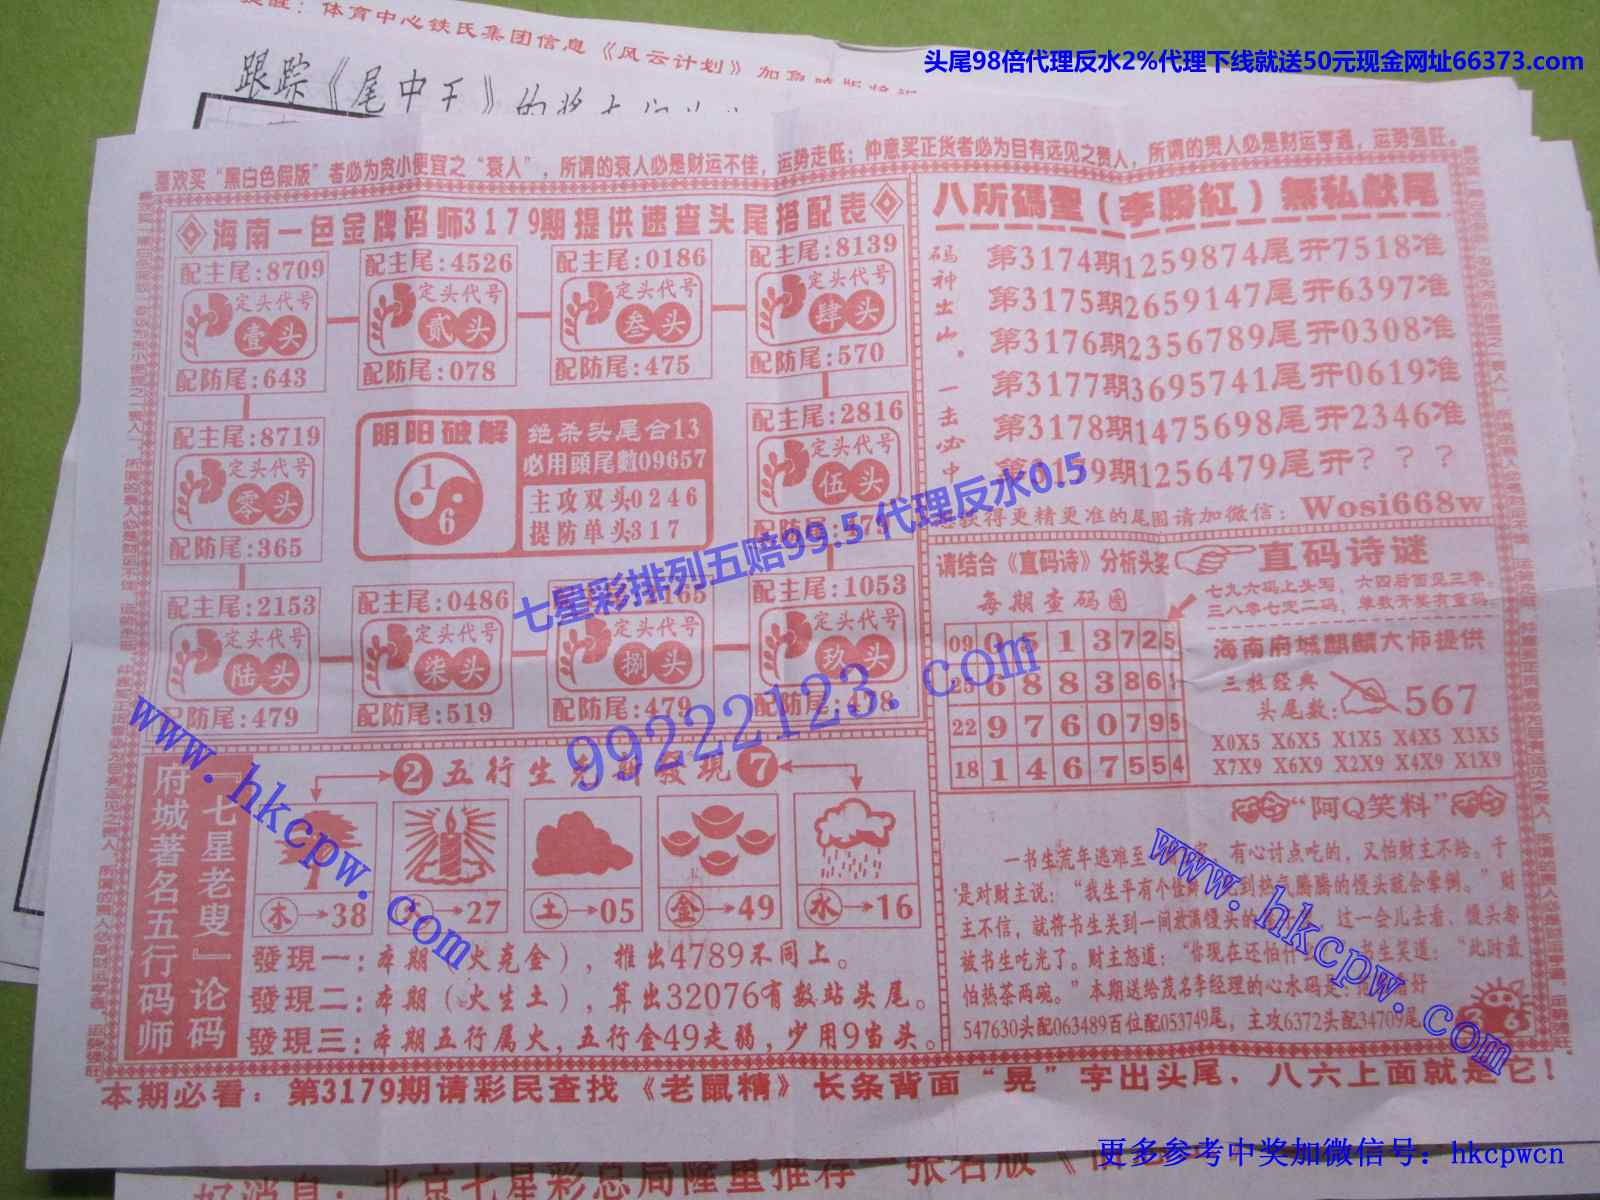 提醒：体育中心铁氏集团信息《风云计划》加
头尾98倍代理反水2%代理下线就送50元现金网址66373.com
跟踪《尾中王》的
喜欢买“黑白色假版”者必为贪小便宜之“衰人”，所谓的衰人必是财运不佳，运势走低；仲意买正货者必为目有远见之贵人，所谓的贵人必是财运亨通，运势强旺。
海南一色金牌码师3179期提供速查头尾搭配表
配主尾:8709
定头代号
壹头
配防尾:643
配主尾:4526
定头代号
贰头
配防尾:078
配主尾:0186
定头代号
叁头
配防尾:475
配主尾:8139
定头代号
肆头
配防尾:570
配主尾:8719
定头代号
零头
配防尾:365
阴阳破解
1
6
绝杀头尾合13
必用頭尾數09657
主攻双头0246
提防单头317
配主尾:2816
定头代号
伍头
配防尾
配主尾:2153
定头代号
陆头
配防尾:479
配主尾:0486
定头代号
柒头
配防尾:519
165
定头代号
捌头
配防尾:479
配主尾:1053
定头代号
玖头
配防尾:478
八所碼聖(李勝紅)無私献尾
码神出山。一击必中
第3174期1259874尾开7518准
第3175期2659147尾开6397准
第3176期2356789尾开0308准
第3177期3695741尾开0619准
第3178期1475698尾开2346准
第3179期1256479尾开？？？
获得更精更准的尾图请加微信：Wosi668w
请结合《直码诗》分析头奖
直码诗谜
七九六码上头写，六四后面见三零。
三八零七定二码，单数开奖有重码。
每期查码图
09 0 5 1 3 7 2 5
25 6 8 8 3 8 6
22 9 7 6 0 7 9 5
18 1 4 6 7 5 5 4
海南府城麒麟大师提供
三组经典
头尾数:
567
X0X5 X6X5 X1X5 X4X5 X3X5
X7X9 X6X9 X2X9 X4X9 X1X9
“阿Q笑料”
一书生荒年逃难至 有心讨点吃的，又怕财主不给。于
是对财主说：“我生平有个怪 到热气腾腾的馒头就会晕倒。”财
主不信，就将书生关到一间放满馒头的 过一会儿去看，馒头都
被书生吃光了。财主怒道：“你现在还怕什 书生笑道：“此时最
怕热茶两碗。”本期送给茂名李经理的心水码是： 好
547630头配063489百位配053749尾，主攻6372头配34709尾
府城著名五行码师
『七星老叟』论码
2 五行生 發現 7
木→38
→27
土→05
金→49
水→16
發現一:本期（火克金），推出4789不同上。
發現二:本期（火生土），算出32076有数站头尾。
發現三:本期五行属火，五行金49走弱，少用9留头。
本期必看：第3179期请彩民查找《老鼠精》长条背面“晃”字出头尾，八六上面就是它！
七星彩排列五赔99.5 代理反水0.5
99222123.com
www.hkcpw.com
www.hkcpw.com
更多参考中奖加微信号：hkcpwcn
好消息：北京七星彩总局隆重推荐一张名版